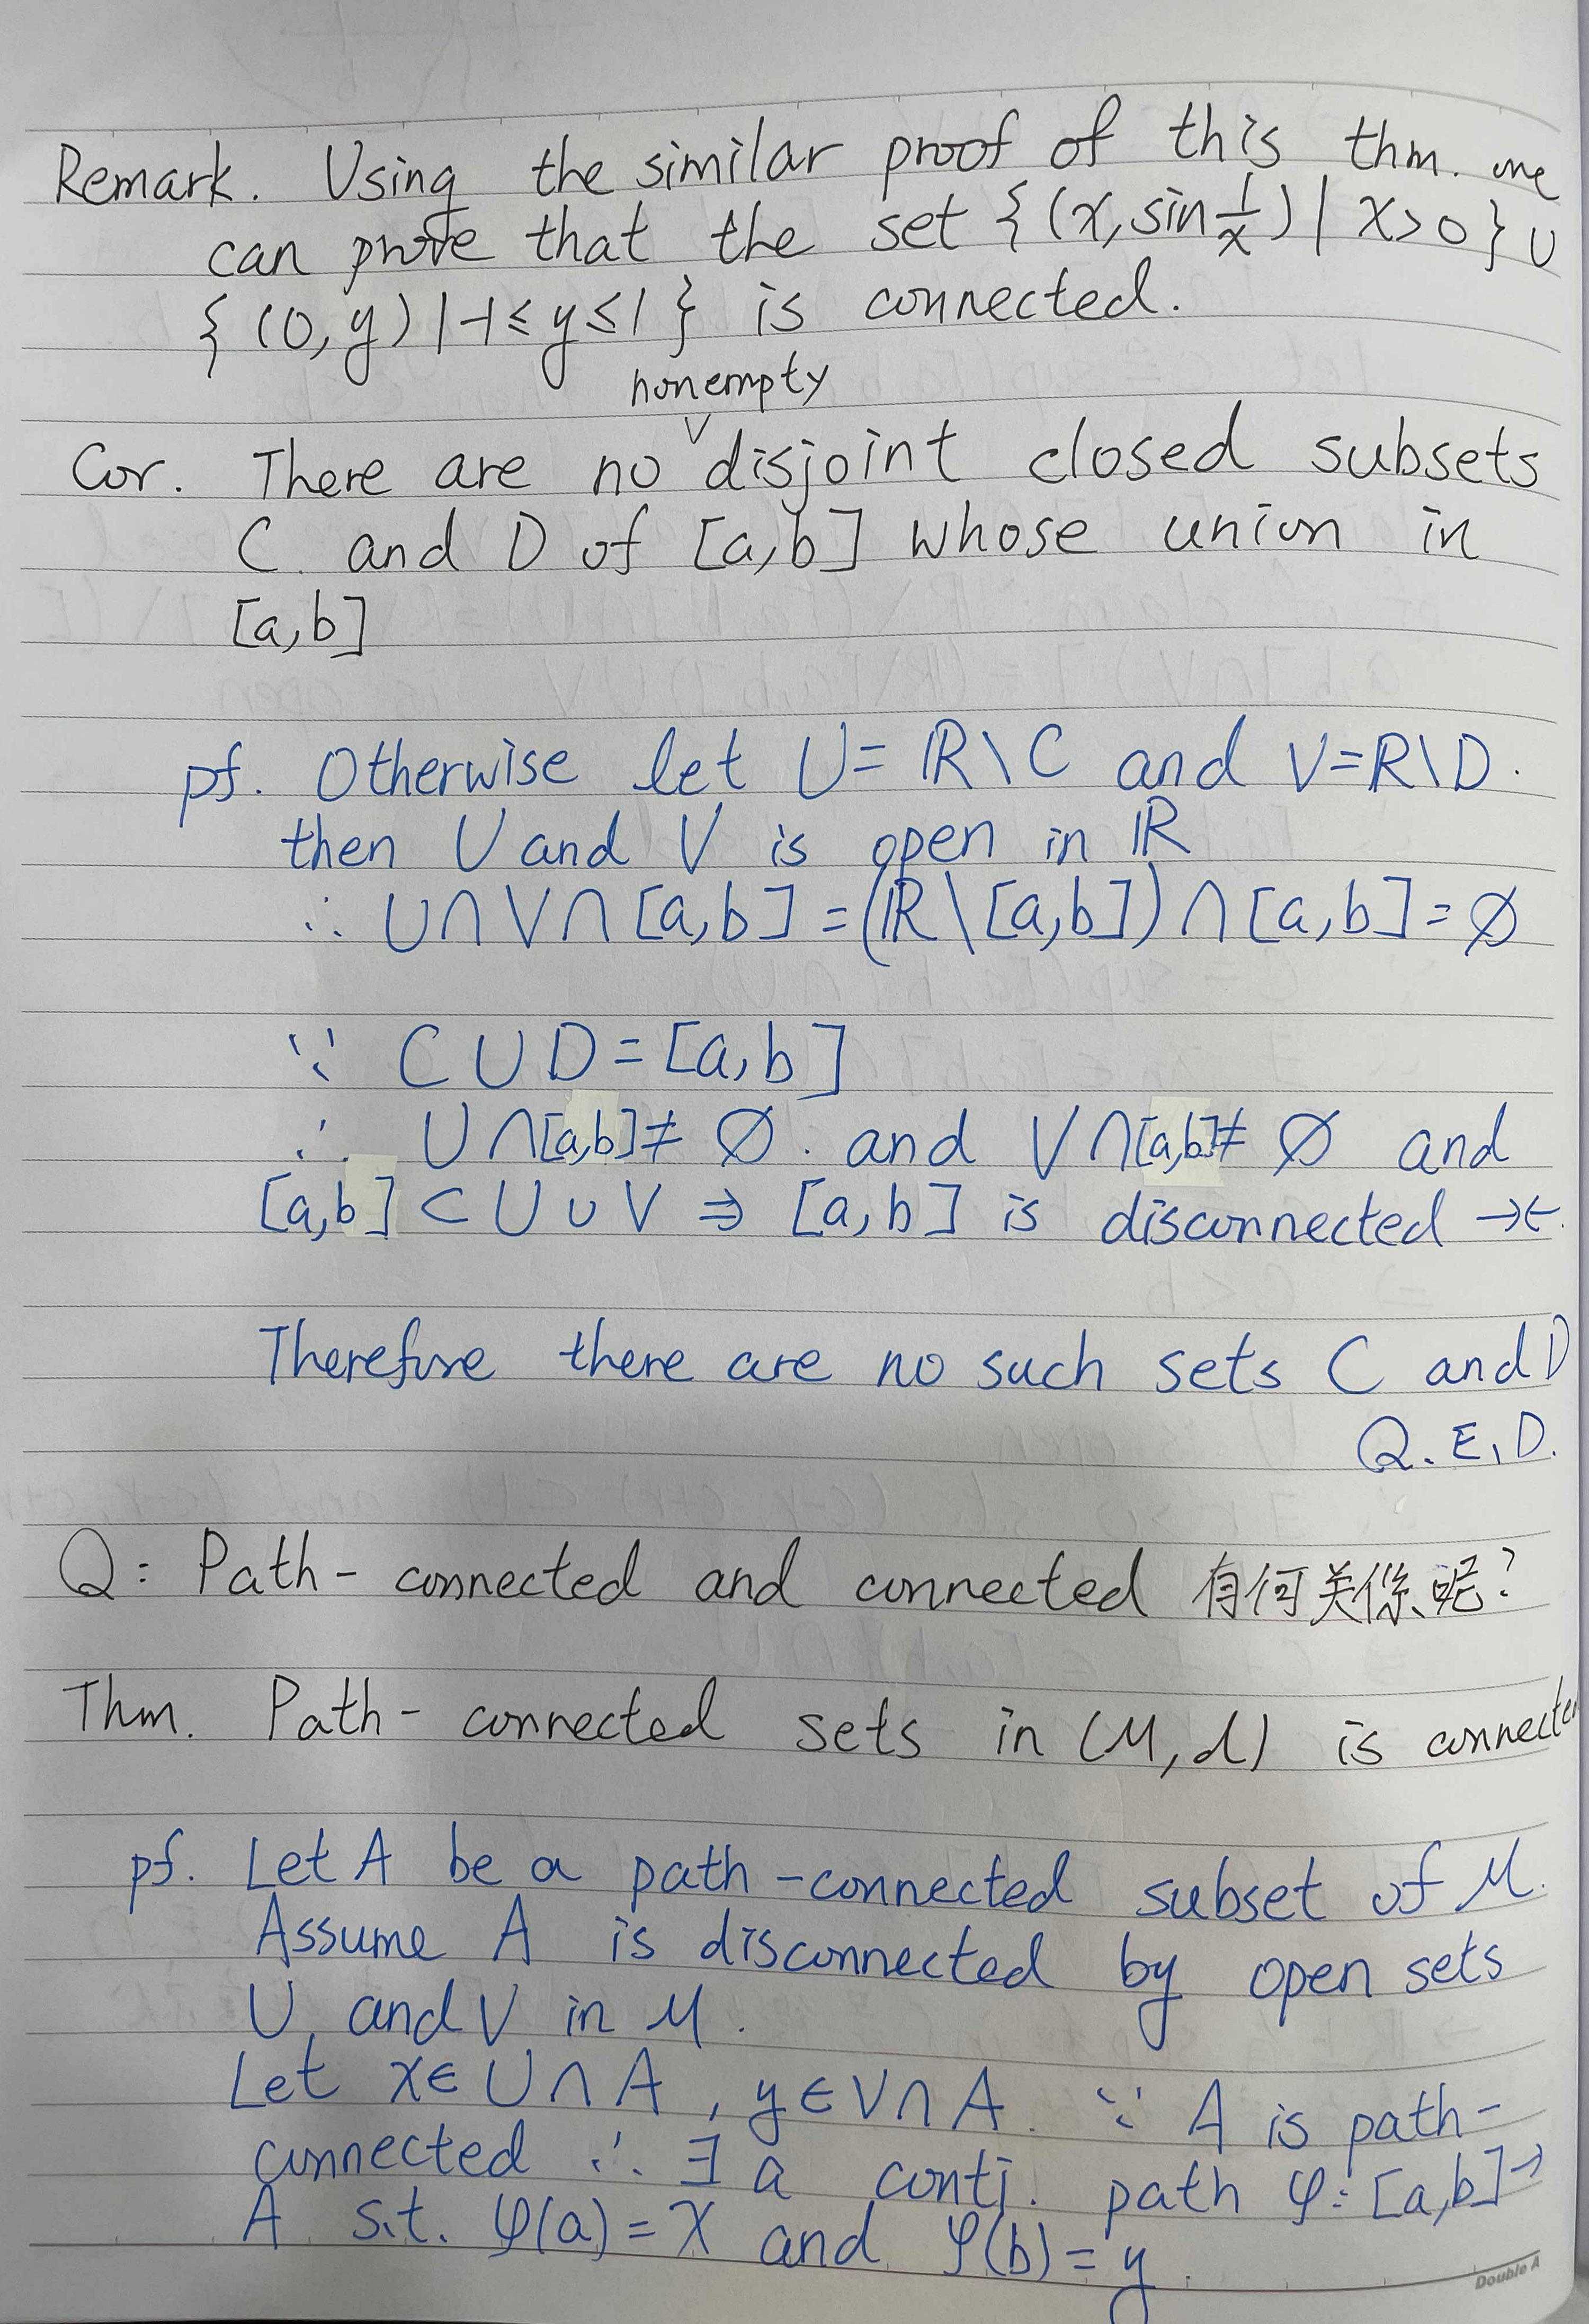 Remark. Using the similar proof of this thm. one
can prove that the set {(x, sin 1/x) | x>0} ∪
{(0, y) | -1≤y≤1} is connected.
nonempty
Cor. There are no ∨ disjoint closed subsets
C and D of [a,b] whose union in
[a,b]
pf. Otherwise let U= ℝ\C and V=ℝ\D.
then U and V is open in ℝ
∴ U∩V∩[a,b]=(ℝ\[a,b])∩[a,b]=∅
∵ C∪D=[a,b]
∴ U∩[a,b]≠ ∅. and V∩[a,b]≠ ∅ and
[a,b]⊂U∪V ⇒ [a,b] is disconnected →←.
Therefore there are no such sets C and D
Q.E.D.
Q: Path-connected and connected 有何关係呢?
Thm. Path-connected sets in (M,d) is connected
pf. Let A be a path-connected subset of M.
Assume A is disconnected by open sets
U, and V in M.
Let x∈U∩A, y∈V∩A. ∵ A is path-
connected ∴ ∃ a conti. path φ: [a,b]→
A s.t. φ(a)=x and φ(b)=y.
Double A